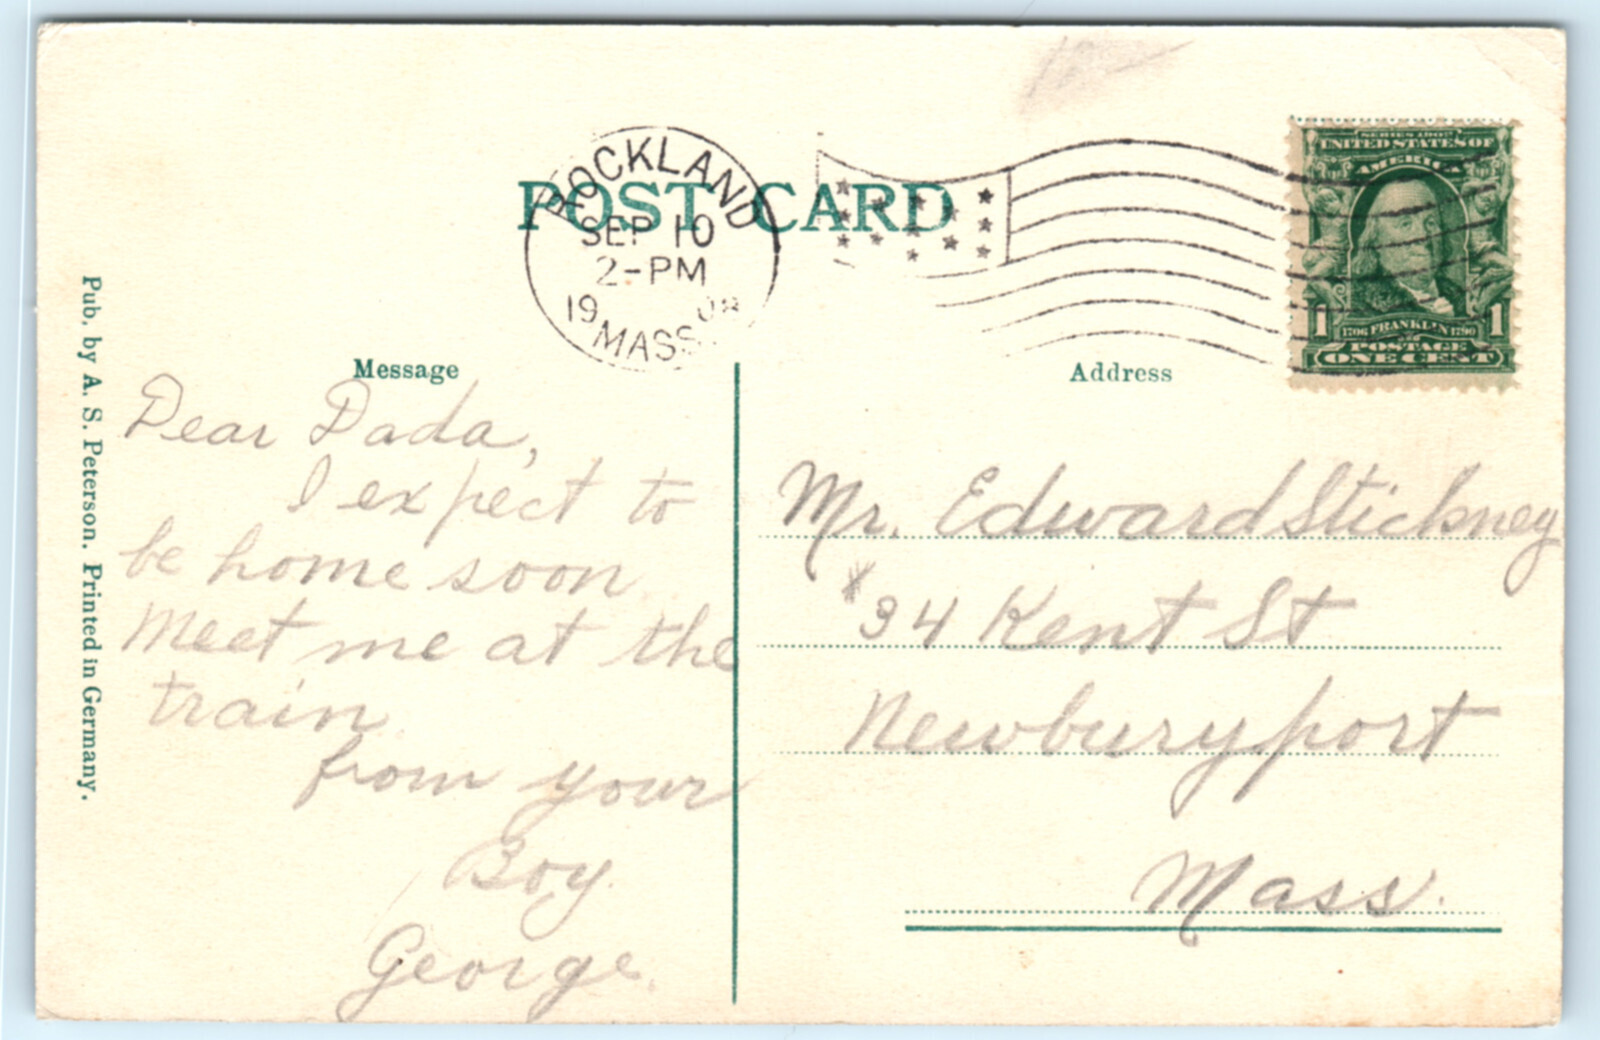 POST CARD
ROCKLAND
SEP 10
2-PM
19 08
MASS.
SERIES 1902
UNITED STATES OF
AMERICA
1 1706 FRANKLIN 1790 1
POSTAGE
ONE CENT
Pub. by A. S. Peterson. Printed in Germany.
Message
Dear Dada,
I expect to
be home soon
Meet me at the
train
from your
Boy.
George.
Address
Mr. Edward Stickney
#34 Kent St
Newburyport
Mass.